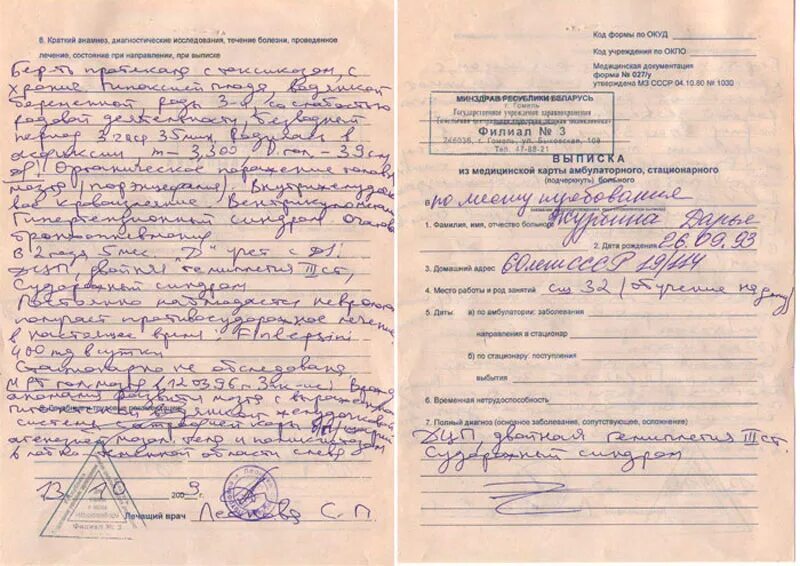 8. Краткий анамнез, диагностические исследования, течение болезни, проведенное
лечение, состояние при направлении, при выписке
Бер-ть протекала с токсикозом, с
хронич. гипоксией плода, водянкой
беременной, роды 3-и, со слабостью
родовой деятельности, безводный
период 3 часа 35 мин, родилась в
асфиксии m - 3,300,
Органическое поражение головн
мозга Внутрижелудочко
вое кровоизлияние. Вентрикуломегалия
Гипертензионный синдром. Очаговая
бронхопневмония
В 2 года 5 мес. "Д" учет с D1:
ДЦП, двойная гемиплегия III ст,
Судорожный синдром
Постоянно наблюдается невролога
получает противосудорожное лечение
в настоящее время. Finlepsini
400 mg в сутки
Стационарно не обследована
МРТ гол. мозга (12.03.96г. Врожд
аномалия развития мозга с выраженной
системы
мозол. тела и
в области слева
13 10 2009 г.
Филиал № 3
Лечащий врач С. П.
Код формы по ОКУД
Код учреждения по ОКПО
Медицинская документация
форма № 027/у
утверждена МЗ СССР 04.10.80 № 1030
МИНЗДРАВ РЕСПУБЛИКИ БЕЛАРУСЬ
г. Гомель
Государственное учреждение здравоохранения
Филиал № 3
246035, г. Гомель, ул. Быховская, 108
Тел. 47-88-21
ВЫПИСКА
из медицинской карты амбулаторного, стационарного
(подчеркнуть) больного
В по месту требования
1. Фамилия, имя, отчество больного Дарья
2. Дата рождения 26.09.93
3. Домашний адрес 60 лет СССР 19/114
4. Место работы и род занятий сш 32 (обучение на дому)
5. Даты а) по амбулатории: заболевания
направления в стационар
б) по стационару: поступления
выбытия
6. Временная нетрудоспособность
7. Полный диагноз (основное заболевание, сопутствующее, осложнение)
ДЦП, двойная гемиплегия III ст.
Судорожный синдром